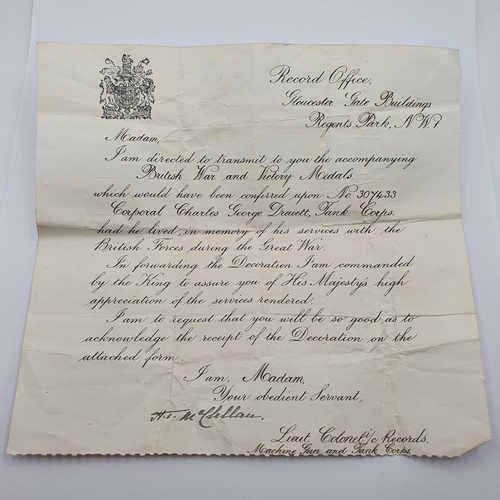 Record Office,
Gloucester Gate Buildings
Regents Park, N.W.1
Madam,
I am directed to transmit to you the accompanying
British War and Victory Medals.
which would have been conferred upon No 307433
Corporal Charles George Drauett, Tank Corps.
had he lived, in memory of his services with the
British Forces during the Great War.
In forwarding the Decoration I am commanded
by the King to assure you of His Majesty's high
appreciation of the services rendered.
I am to request that you will be so good as to
acknowledge the receipt of the Decoration on the
attached form.
I am, Madam,
Your obedient Servant,
McClellan
Lieut Colonel i/c Records.
Machine Gun and Tank Corps.